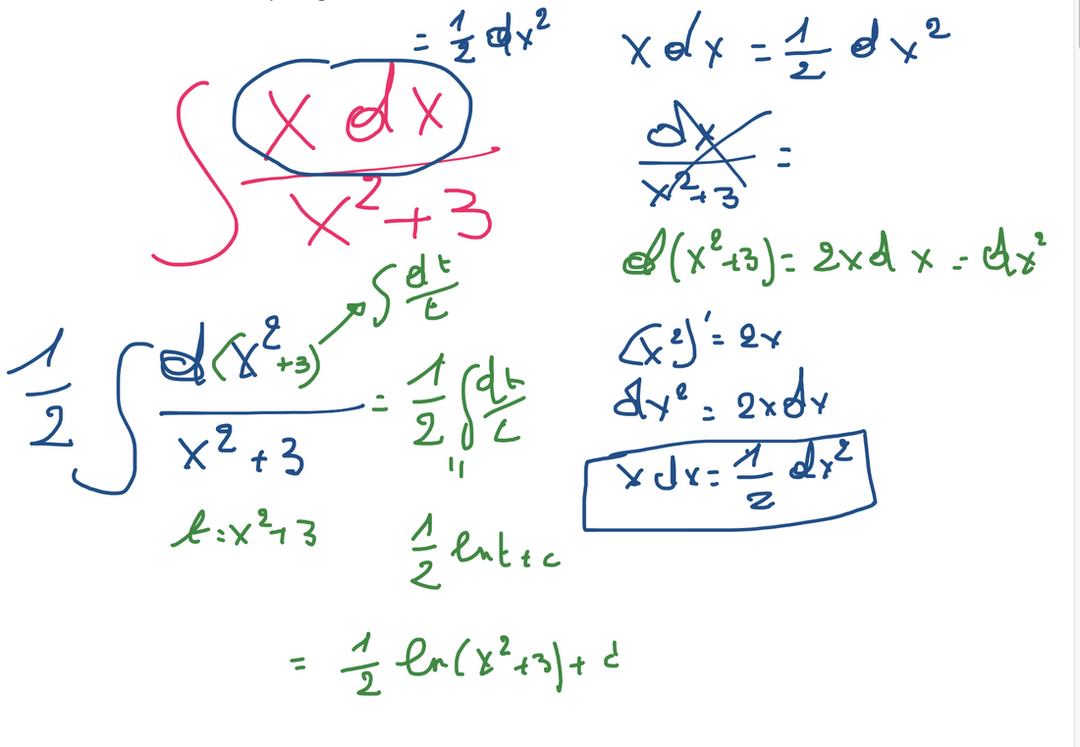 = 1/2 dx²
∫ x dx / x²+3
∫ dt/t
1/2 ∫ d(x²+3) / x²+3 = 1/2 ∫ dt/t
t = x²+3
"
1/2 ln t + c
= 1/2 ln(x²+3) + c
x dx = 1/2 dx²
dx / x²+3 =
d(x²+3) = 2x dx = dx²
(x²)' = 2x
dx² = 2x dx
x dx = 1/2 dx²